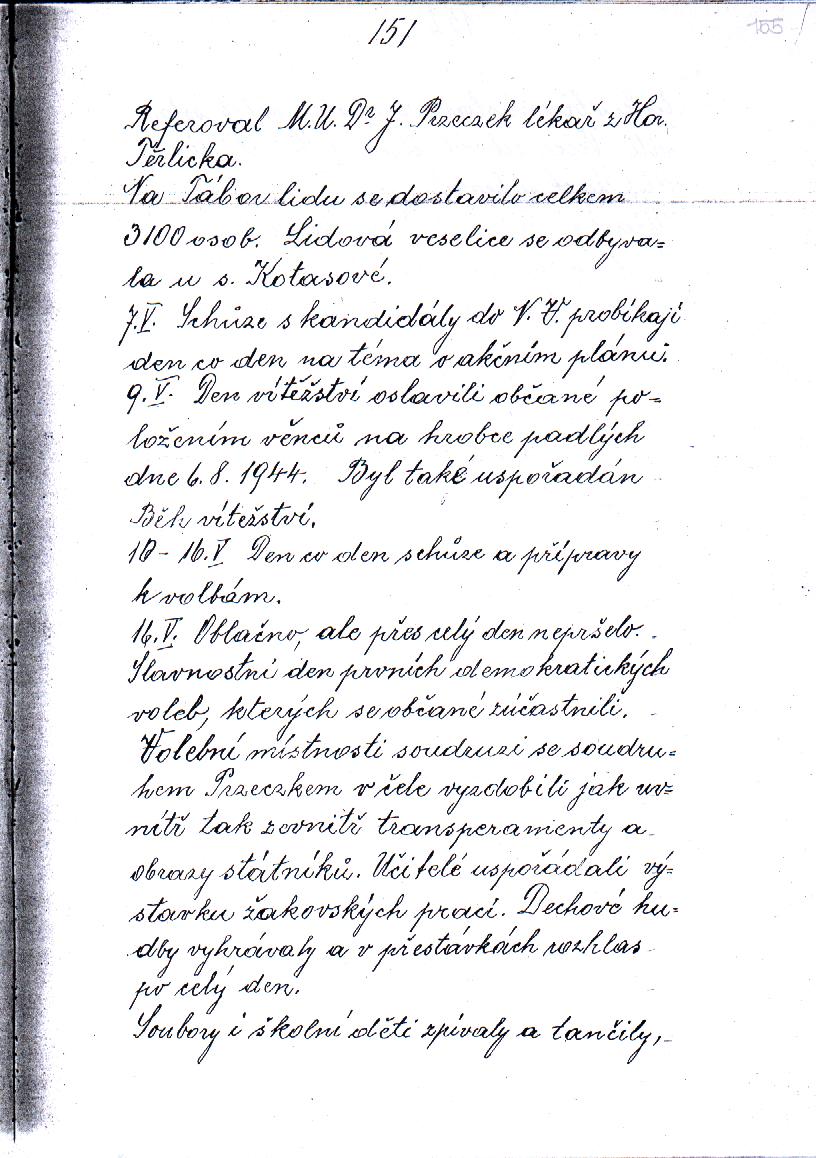 151
155
Referoval M.U. Dr J. Przeczek lékař z Hor.
Těrlicka.
Na Tábor lidu se dostavilo celkem
3100 osob. Lidová veselice se odbyva=
la u s. Kotasové.
7.V. Schůze s kandidály do N.V. probíkají
den co den na téma o akčním plánu.
9.V. Den vítěžství oslavili občané po=
ložením věnců na hrobce padlých
dne 6.8.1944. Byl také uspořadán
Běh vítežství.
10-16.V Den co den schůze a přípravy
k volbám.
16.V. Oblačno, ale přes celý den nepršelo.
Slavnostní den prvních demokratických
voleb, kterých se občané zúčastnili.
Volební místnosti soudruzi se soudru=
hem Przeczkem v čele vyzdobili jak uv=
nitř tak zevnitř transperamenty a
obrazy státníků. Učitelé uspořádali vý=
stavku žakovských prací. Dechové hu=
dby vyhrávaly a v přestávkách rozhlas
po celý den.
Soubory i školní děti zpívaly a tančily,